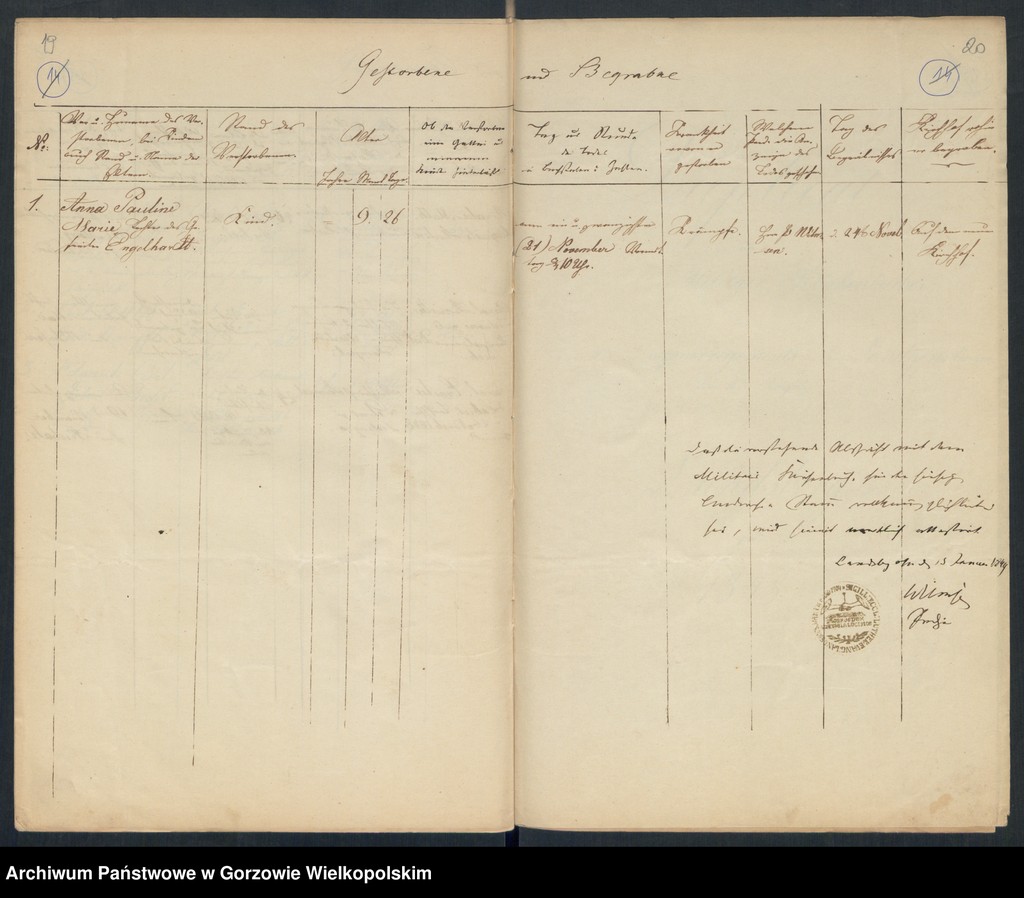 19
14
20
14
Gestorbene und Begrabne
No.
Vor u. Zuname des Ver-
storbenen, bei Kindern
auch Stand u. Name der
Eltern.
Stand des
Verstorbenen.
Alter
Jahre Monat Tage
Ob der Verstorbene
einen Gatten u
Tag und Stunde
des Todes
in Buchstaben u Zahlen.
Krankheit
woran er
gestorben
Welchem
Tag des
Begräbnisses
Kirchhof wohin
er begraben.
1.
Anna Pauline
Marie, Tochter des Ge-
freiten Engelhardt.
Kind.
9. 26
am ein u. zwanzigsten
(21) November
10 Uhr.
Krämpfe.
d. 24 Novbr.
Auf dem neuen
Kirchhof.
Daß die vorstehende Abschrift mit dem
Militair Kirchenbuche für die hiesige
Landwehr Stamm
sei, wird hiermit amtlich attestirt
Landsberg a/W den 13 Januar 1849
Archiwum Państwowe w Gorzowie Wielkopolskim